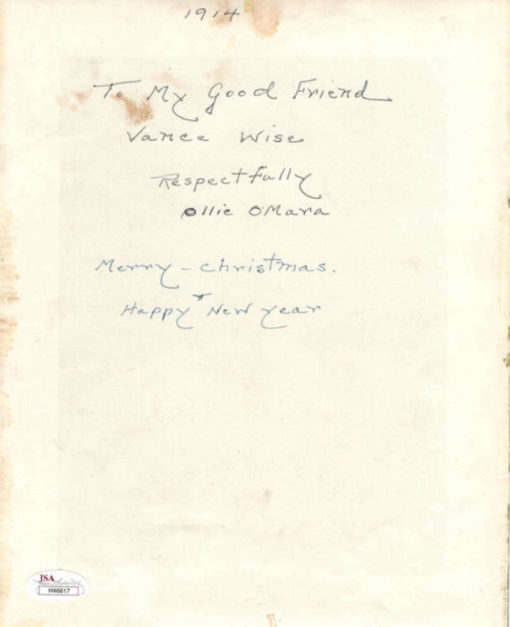 1914
To My Good Friend
Vance Wise
Respectfully
Ollie OMara
Merry - Christmas.
Happy New Year
JSA
H46617